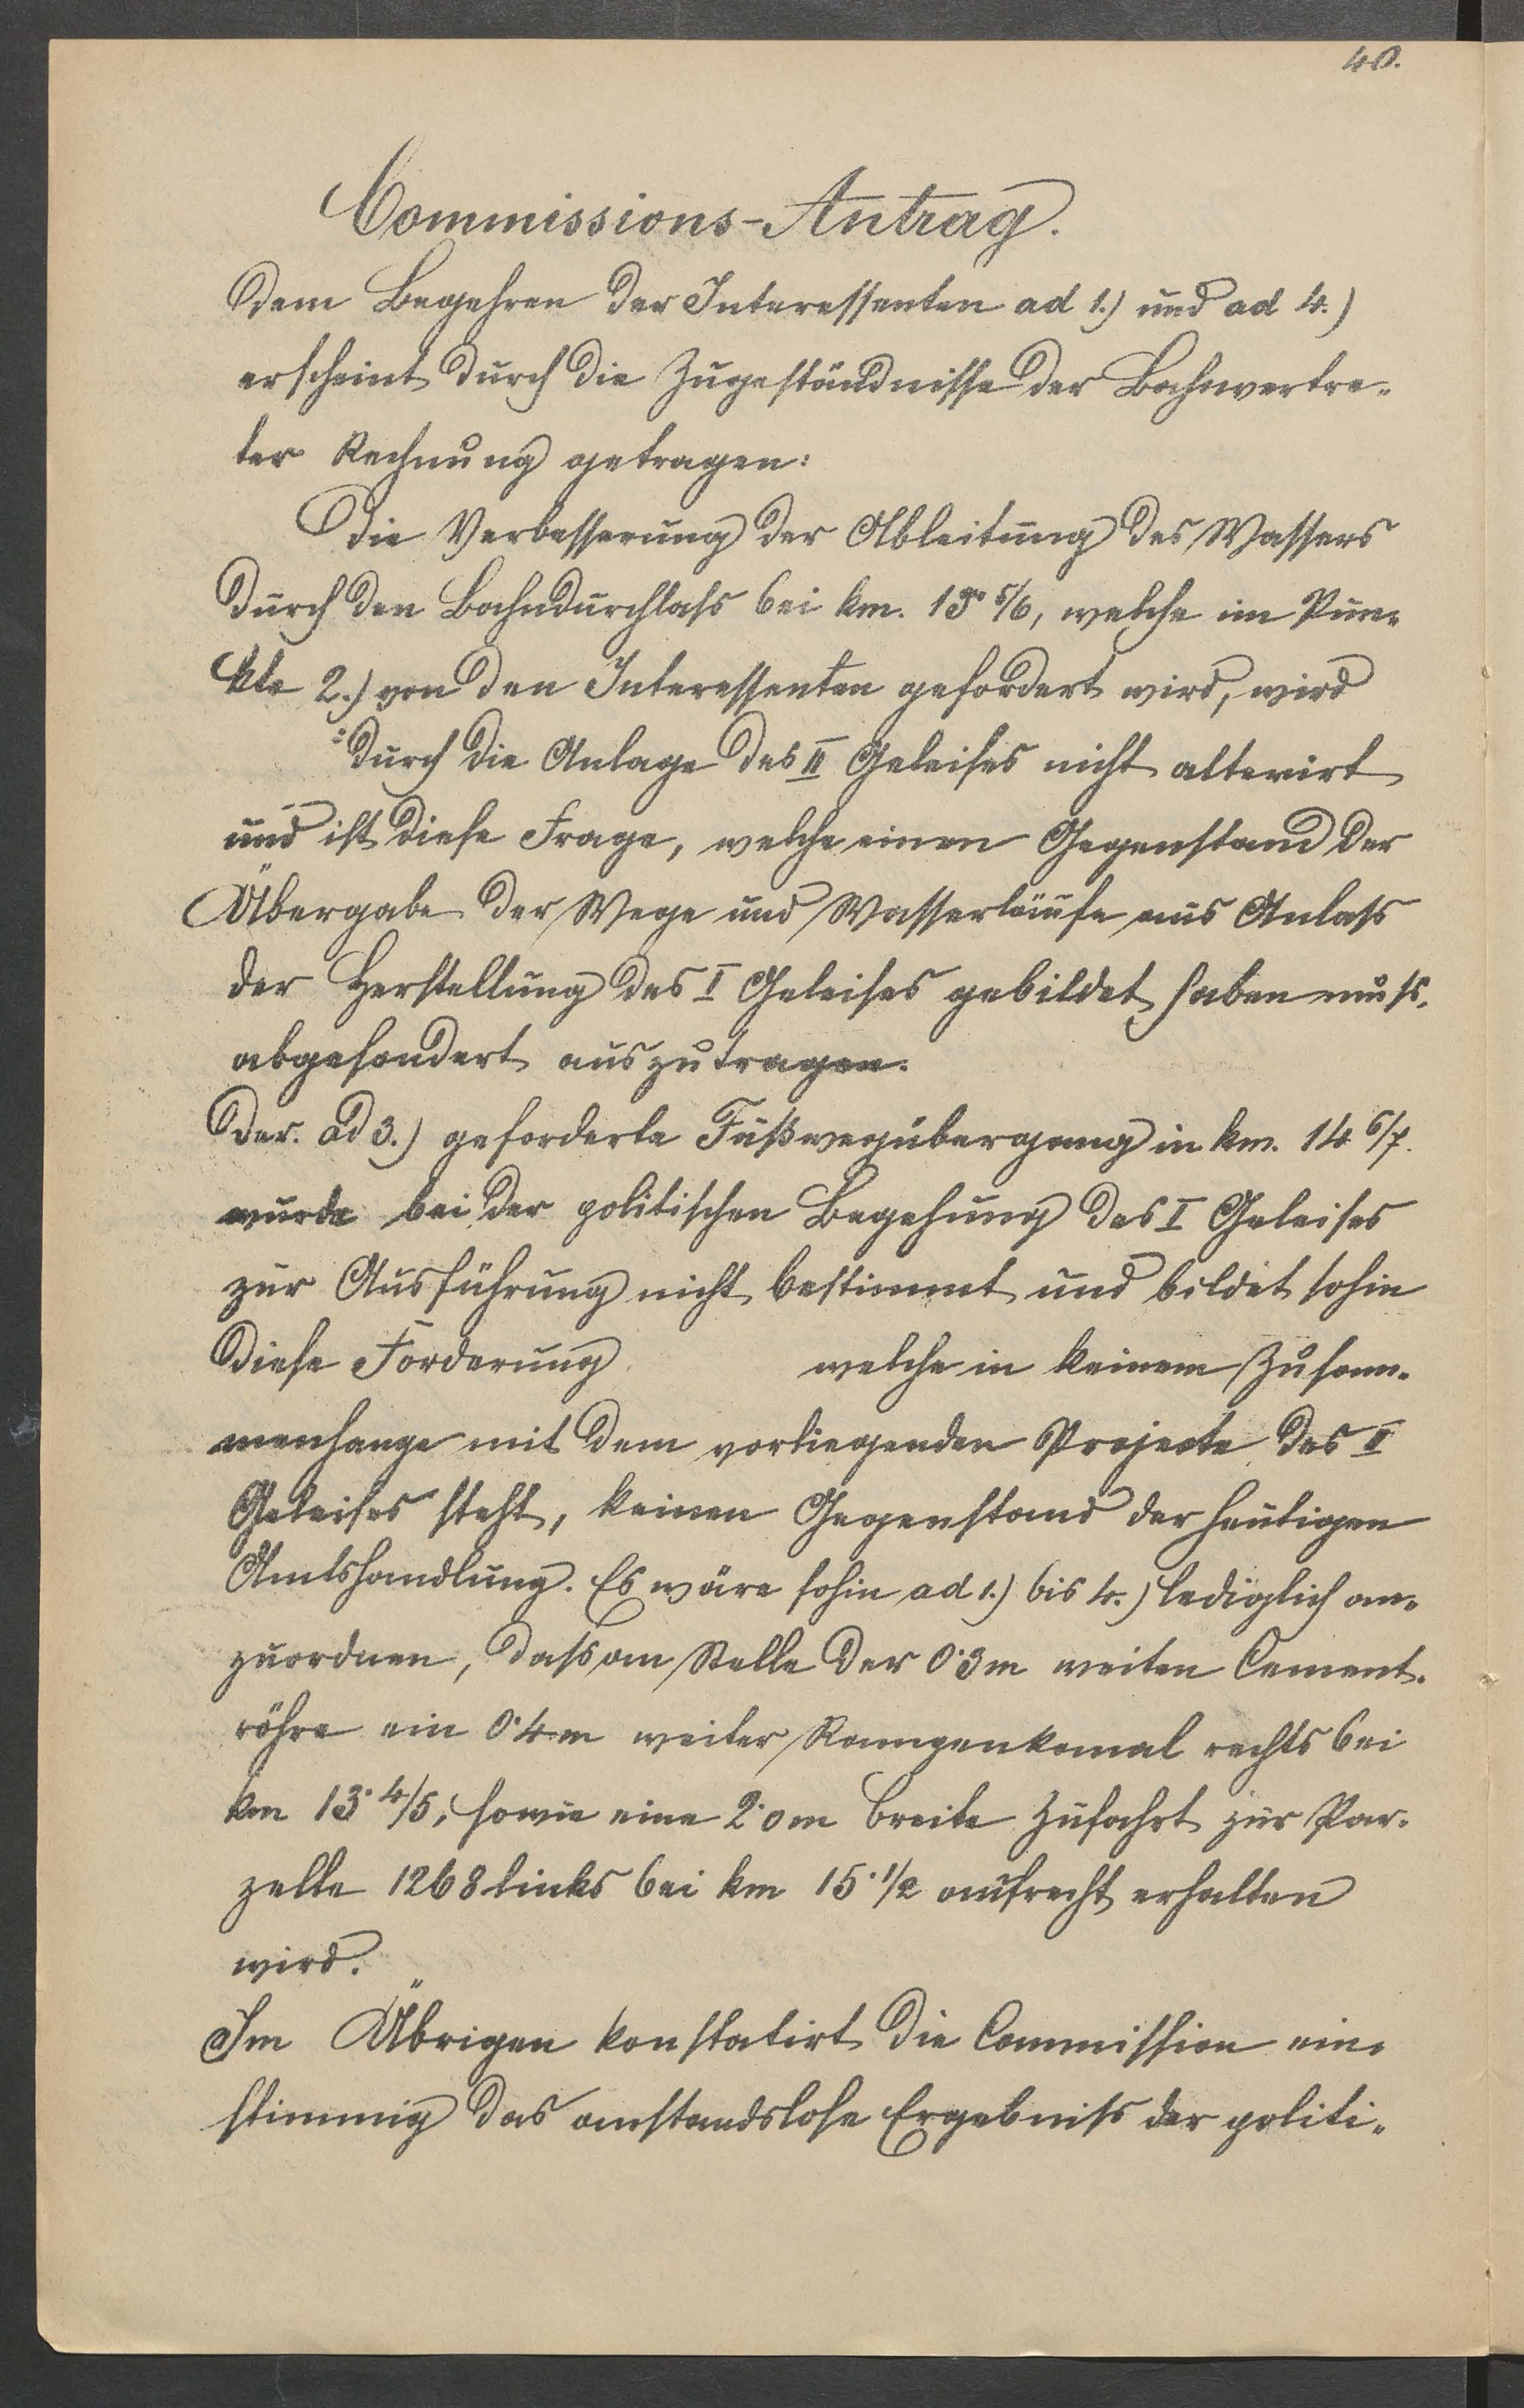 40.
Commissions-Antrag.
Dem Begehren der Interessenten ad 1.) und ad 4.)
erscheint durch die Zugeständnisse der Bahnvertre-
ter Rechnung getragen:
Die Verbesserung der Ableitung des Wassers
durch den Bahndurchlaß bei km. 13· 5/6, welche im Pun-
kte 2.) von den Interessenten gefordert wird, wird
durch die Anlage des II Geleises nicht alterirt
und ist diese Frage, welche einen Gegenstand der
Übergabe der Wege und Wasserläufe aus Anlaß
der Herstellung des I Geleises gebildet haben muß,
abgesondert auszutragen.
Der ad 3.) geforderte Fußwegübergang in km. 14 6/7.
wurde bei der politischen Begehung des I Geleises
zur Ausführung nicht bestimmt und bildet sohin
diese Forderung welche in keinem Zusam-
menhange mit dem vorliegenden Projecte des II
Geleises steht, keinen Gegenstand der heutigen
Amtshandlung. Es wäre sohin ad 1.) bis 4.) lediglich an-
zuordnen, daß an Stelle der 0·3m weiten Cement-
röhre ein 0·4m weiter Rampenkanal rechts bei
km 13· 4/5, sowie eine 2·0m breite Zufahrt zur Par-
zelle 1268 links bei km 15· 1/2 aufrecht erhalten
wird.
Im Übrigen konstatirt die Commission ein-
stimmig das anstandslose Ergebniß der politi-